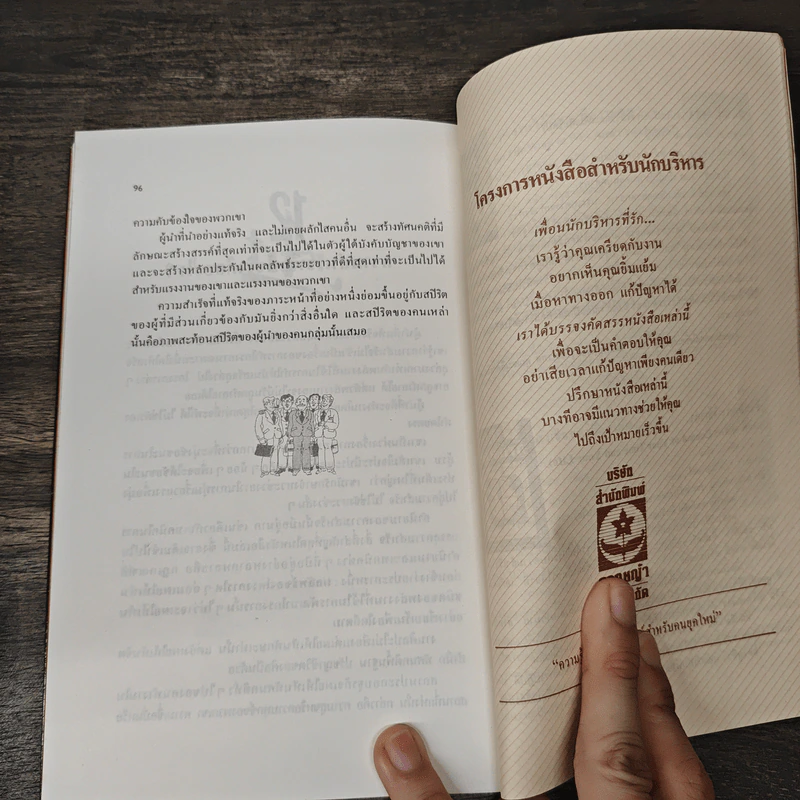 96
ความคับข้องใจของพวกเขา
ผู้นำที่นำอย่างแท้จริง และไม่เคยผลักไสคนอื่น จะสร้างทัศนคติที่มี
ลักษณะสร้างสรรค์ที่สุดเท่าที่จะเป็นไปได้ในตัวผู้ใต้บังคับบัญชาของเขา
และจะสร้างหลักประกันในผลลัพธ์ระยะยาวที่ดีที่สุดเท่าที่จะเป็นไปได้
สำหรับแรงงานของเขาและแรงงานของพวกเขา
ความสำเร็จที่แท้จริงของภาระหน้าที่อย่างหนึ่งย่อมขึ้นอยู่กับสปิริต
ของผู้ที่มีส่วนเกี่ยวข้องกับมันยิ่งกว่าสิ่งอื่นใด และสปิริตของคนเหล่า
นั้นคือภาพสะท้อนสปิริตของผู้นำของคนกลุ่มนั้นเสมอ
โครงการหนังสือสำหรับนักบริหาร
เพื่อนนักบริหารที่รัก...
เรารู้ว่าคุณเครียดกับงาน
อยากเห็นคุณยิ้มแย้ม
เมื่อหาทางออก แก้ปัญหาได้
เราได้บรรจงคัดสรรหนังสือเหล่านี้
เพื่อจะเป็นคำตอบให้คุณ
อย่าเสียเวลาแก้ปัญหาเพียงคนเดียว
ปรึกษาหนังสือเหล่านี้
บางทีอาจมีแนวทางช่วยให้คุณ
ไปถึงเป้าหมายเร็วขึ้น
บริษัท
สำนักพิมพ์
สำหรับคนยุคใหม่"